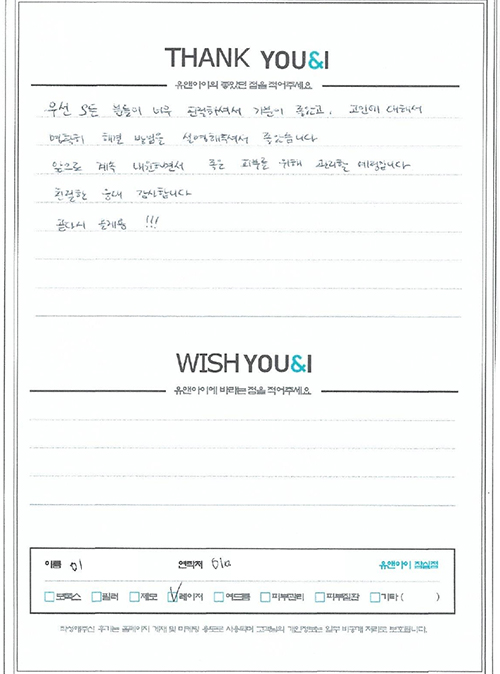 THANK YOU&I
유앤아이의 좋았던 점을 적어주세요
우선 모든 분들이 너무 친절하셔서 기분이 좋았고, 고민에 대해서
명확히 해결 방법을 설명해주셔서 좋았습니다
앞으로 계속 내원하면서 좋은 피부를 위해 관리할 예정입니다
친절한 응대 감사합니다
곧다시 올게용 !!!
WISH YOU&I
유앤아이에 바라는 점을 적어주세요
이름 이 연락처 010 유앤아이 잠실점
보톡스 필러 제모 레이저 여드름 피부관리 피부질환 기타 ( )
작성해주신 후기는 홈페이지 게재 및 마케팅 용도로 사용되며 고객님의 개인정보는 일부 비공개 처리로 보호됩니다.